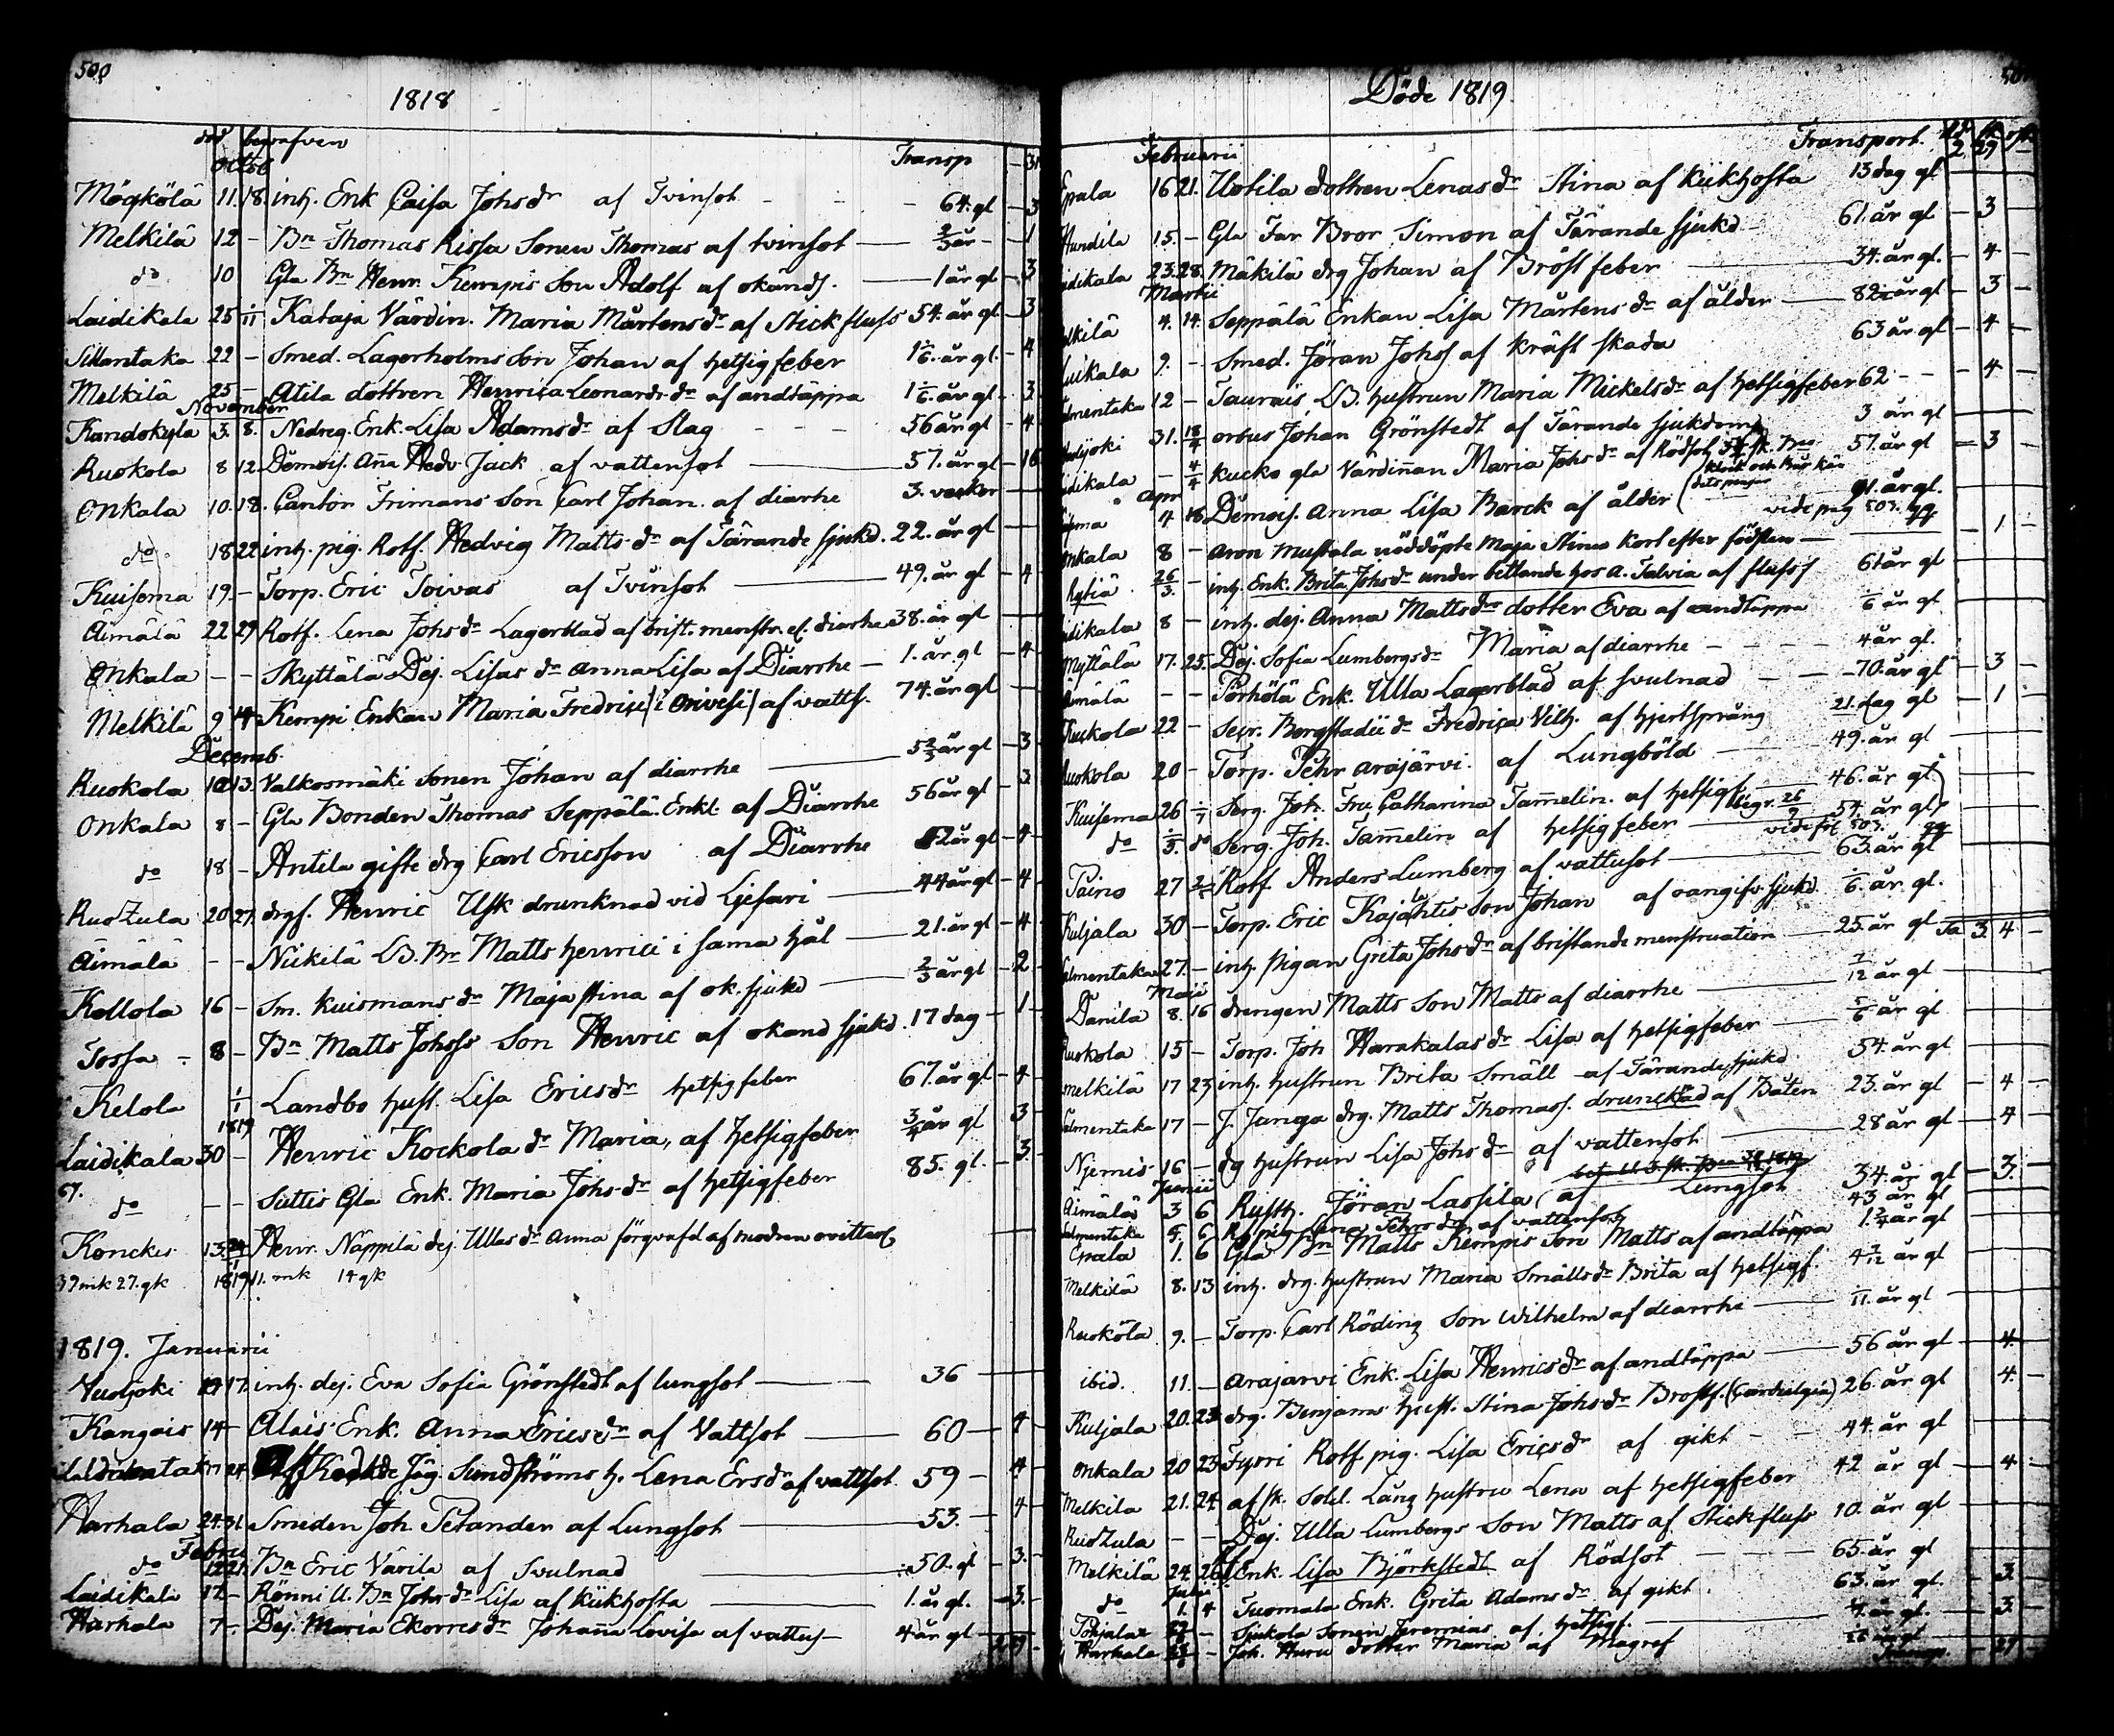 500
1818
död begrafven
Octob Transp
Mögkölä 11. 18. inh. Enk Caisa Johsdr af Tvinsot 64. gl 3
Melkilä 12 - Bn Thomas Rissa Sonen Thomas af tvinsot 2/3 år 1
do 10 Gla Bn Henr. Kempis Son Adolf af okänds. 1 år gl 3
Laidikala 25 1/11 Kataja Värdin. Maria Mårtensdr af Stickfluss 54. år gl 3
Sillantaka 22 - Smed. Lagerholms Son Johan af hetsigfeber 1 1/6. år gl. 4
Melkilä 25 - Atila dottren Henrica Leonardr.dr af andtäppa 1 1/6. år gl. 3
November
Kandokyla 3. 8. Nedreg. Enk. Lisa Adamsdr af Slag 56 år gl 4
Ruokola 8 12 Demois. Aña Hedv. Jack af vattensot 57. år gl 16
Onkala 10. 18. Cantor Frimans Son Carl Johan. af diarhe 3. veckor
do 18 22 inh. pig. Rotf. Hedvig Mattsdr af Tärande sjukd. 22. år gl
Kuisema 19. - Torp. Eric Toivas af Tvinsot 49. år gl 4
Äimälä 22 29 Rotf. Lena Johsdr Lagerblad af brist. menstr. et. diarhe 38. år gl
Onkala - - Skyttälä Dej. Lisas dr Anna Lisa af Diarrhe 1. år gl 4
Melkilä 9 14 Kempi Enkan Maria Fredrici /i Orivesi/ af vatts. 74. år gl
Decemb.
Ruokola 10 13. Valkosmäki Sonen Johan af diarrhe 5 2/3 år gl 3
Onkala 8 - Gla Bonden Thomas Seppälä Enkl. af Diarrhe 56 år gl 3
do 18 - Antila gifte drg Carl Ericsson af Diarrhe 52 år gl 4
Ruozula 20 27. drgs. Henric Usk drunknad vid Ljesari 44 år gl 4
Äimälä - - Nickilä LB. Br Matts Henrici i sama hål 21. år gl 4
Kollola 16 - Sm. Kuismans dr Maja Stina af ok. sjukd 2/3 år gl 2
Tossa 8 - Bn Matts Johss Son Henric af okand sjukd. 17 dag 1
Kelola 1/1 1819 Landbo hust. Lisa Ericsdr hetsigfeber 67. år gl 4
Laidikala 30 - Henric Kockola dr Maria, af hetsigfeber 3/4 år gl 3
67.
do - - Suttis Gla Enk. Maria Johsdr af hetsigfeber 85. gl. 3.
Konckis 13. Henr. Näppilä dej. Ullas dr Anna förqvafd af modren ovittnes
37 mk 27. qk 1819 11. mk 14 qk
1819. Januarii
Vuoljoki 17. inh. dej. Eva Sofia Grönstedt af lungsot 36
Kangais 14 - Alais Enk. Anna Ericsdr af Vattsot 60 4
Jäg. Sundströms h. Lena Ersdr af vattsot 59 4
Harhala 24. 31. Smeden Joh. Petander af Lungsot 53. 4
Febru
do Bn Eric Värila af Svulnad 50. gl 3.
Laidikala 12 - Rönni U. Bn Johsdr Lisa af kikhosta 1. år gl. 3.
Harhala 7 - Dej. Maria Ekorres dr Johaña Lovisa af vattus 4 år gl
Döde 1819.
Februarii Transport
Epala 16 21. Uotila dottren Lenas dr Stina af kikhosta 13 dag gl
Hundila 15. - Gla Far Bror Simon af Tärande sjukd 61. år gl 3
23. 28. Mäkilä drg Johan af Bröst feber 34. år gl. 4
Martii
4. 14. Seppälä Enkan Lisa Mårtensdr af ålder 82 år gl 3
9. - Smed. Jöran Johss af kräft skada 63 år gl 4
12 - Taurais LB. hustrun Maria Mickelsdr af hetsigfeber 62 4
31. 18/4 Johan Grönstedt af Tärande sjukdom 3 år gl
4/4 Kucko gla Värdiñan Maria Johsdr af Rödsot 57. år gl 3
Apr
4 18 Demois. Anna Lisa Barck af ålder 91. år gl.
vide pag 503.
Onkala 8 - Aron Mustala nöddöpte Maja Stina kort efter födslen 1
Rytiä 26/3. - inh. Enk. Brita Johsdr under bettlande hos A. Talvia af fluss 61 år gl
8 - inh. dej. Anna Mattsdrs dotter Eva af andtäppa 1/6 år gl
Myttälä 17. 25. Dej. Sofia Lumbergs dr Maria af diarrhe 4 år gl.
- - Pörhölä Enk. Ulla Lagerblad af svulnad 70. år gl 3
Ruokola 22 - Secr. Bergstadii dr Fredrica Vilh. af hjertsprång 21. dag gl 1
Ruokola 20 - Torp. Pehr Arajärvi. af Lungböld 49. år gl
Kuisema 26 Serg. Joh. Fru Catharina Tamelin. af hetsigf. 46. år gl
do Serg. Joh. Tamelin af hetsig feber 54. år gl
vide fol 503.
Paino 27 Rotf. Anders Lumberg af vattusot 63. år gl
Kuljala 30 - Torp. Eric Kajahtis Son Johan af oangifv. sjukd. 1/6. år. gl.
27. - inh. pigan Greta Johsdr af bristande menstruation 25. år gl 3. 4
Maji
Danila 8. 16 drengen Matts Son Matts af diarrhe 7/12 år gl
Ruokola 15 - Torp. Joh Harakalas dr Lisa af hetsigfeber 5/6 år gl
Melkilä 17 23 inh. hustrun Brita Småll af Tärande sjukd. 54. år gl
17 - J. Junga drg. Matts Thomass. drunknad af Båten 23. år gl 4
Njemis 16 - dg hustrun Lisa Johsdr af vattensot 28 år gl 4
Junii
Äimälä 3 6 Rusth. Jöran Lassila af Lungsot 34. år gl 3.
6 Rf pig Lena Pehrsdr af vattensot 43 år gl
Epala 1. 6 Gla Bn Matts Kempis Son Matts af andtäppa 1. 3/4 år gl
Melkilä 8. 13 inh. drg. hustrun Maria Småll dr Brita af hetsigf. 4 7/12 år gl
Ruoköla 9. - Torp. Carl Röding Son Wilhelm af diarrhe 1/11. år gl
ibid. 11. - Arajarvi Enk. Lisa Henricsdr af andtäppa 56 år gl 4.
Kuljala 20. 23 drg. Benjams hust. Stina Johsdr Brostf. (Cardialgia) 26. år gl 4.
Onkala 20 23 Fyori Rotf pig. Lisa Ericsdr af gikt 44. år gl
Melkila 21. 24 afsk. Sold. Lång hustru Lena af hetsigfeber 42 år gl 4
Ruozula - - Dej. Ulla Lumbergs Son Matts af Stickfluss 10. år gl
Melkilä 24. 26. Enk. Lisa Björkstedt af Rödsot 65. år gl
Julii
do 1. 4 Tuomala Enk. Greta Adamsdr af gikt 63. år gl. 3.
Pohjala - Sjukola Sonen Jeremias af. hetsigf. 3.
Harhala - Joh. Huru dotter Maria af Magref